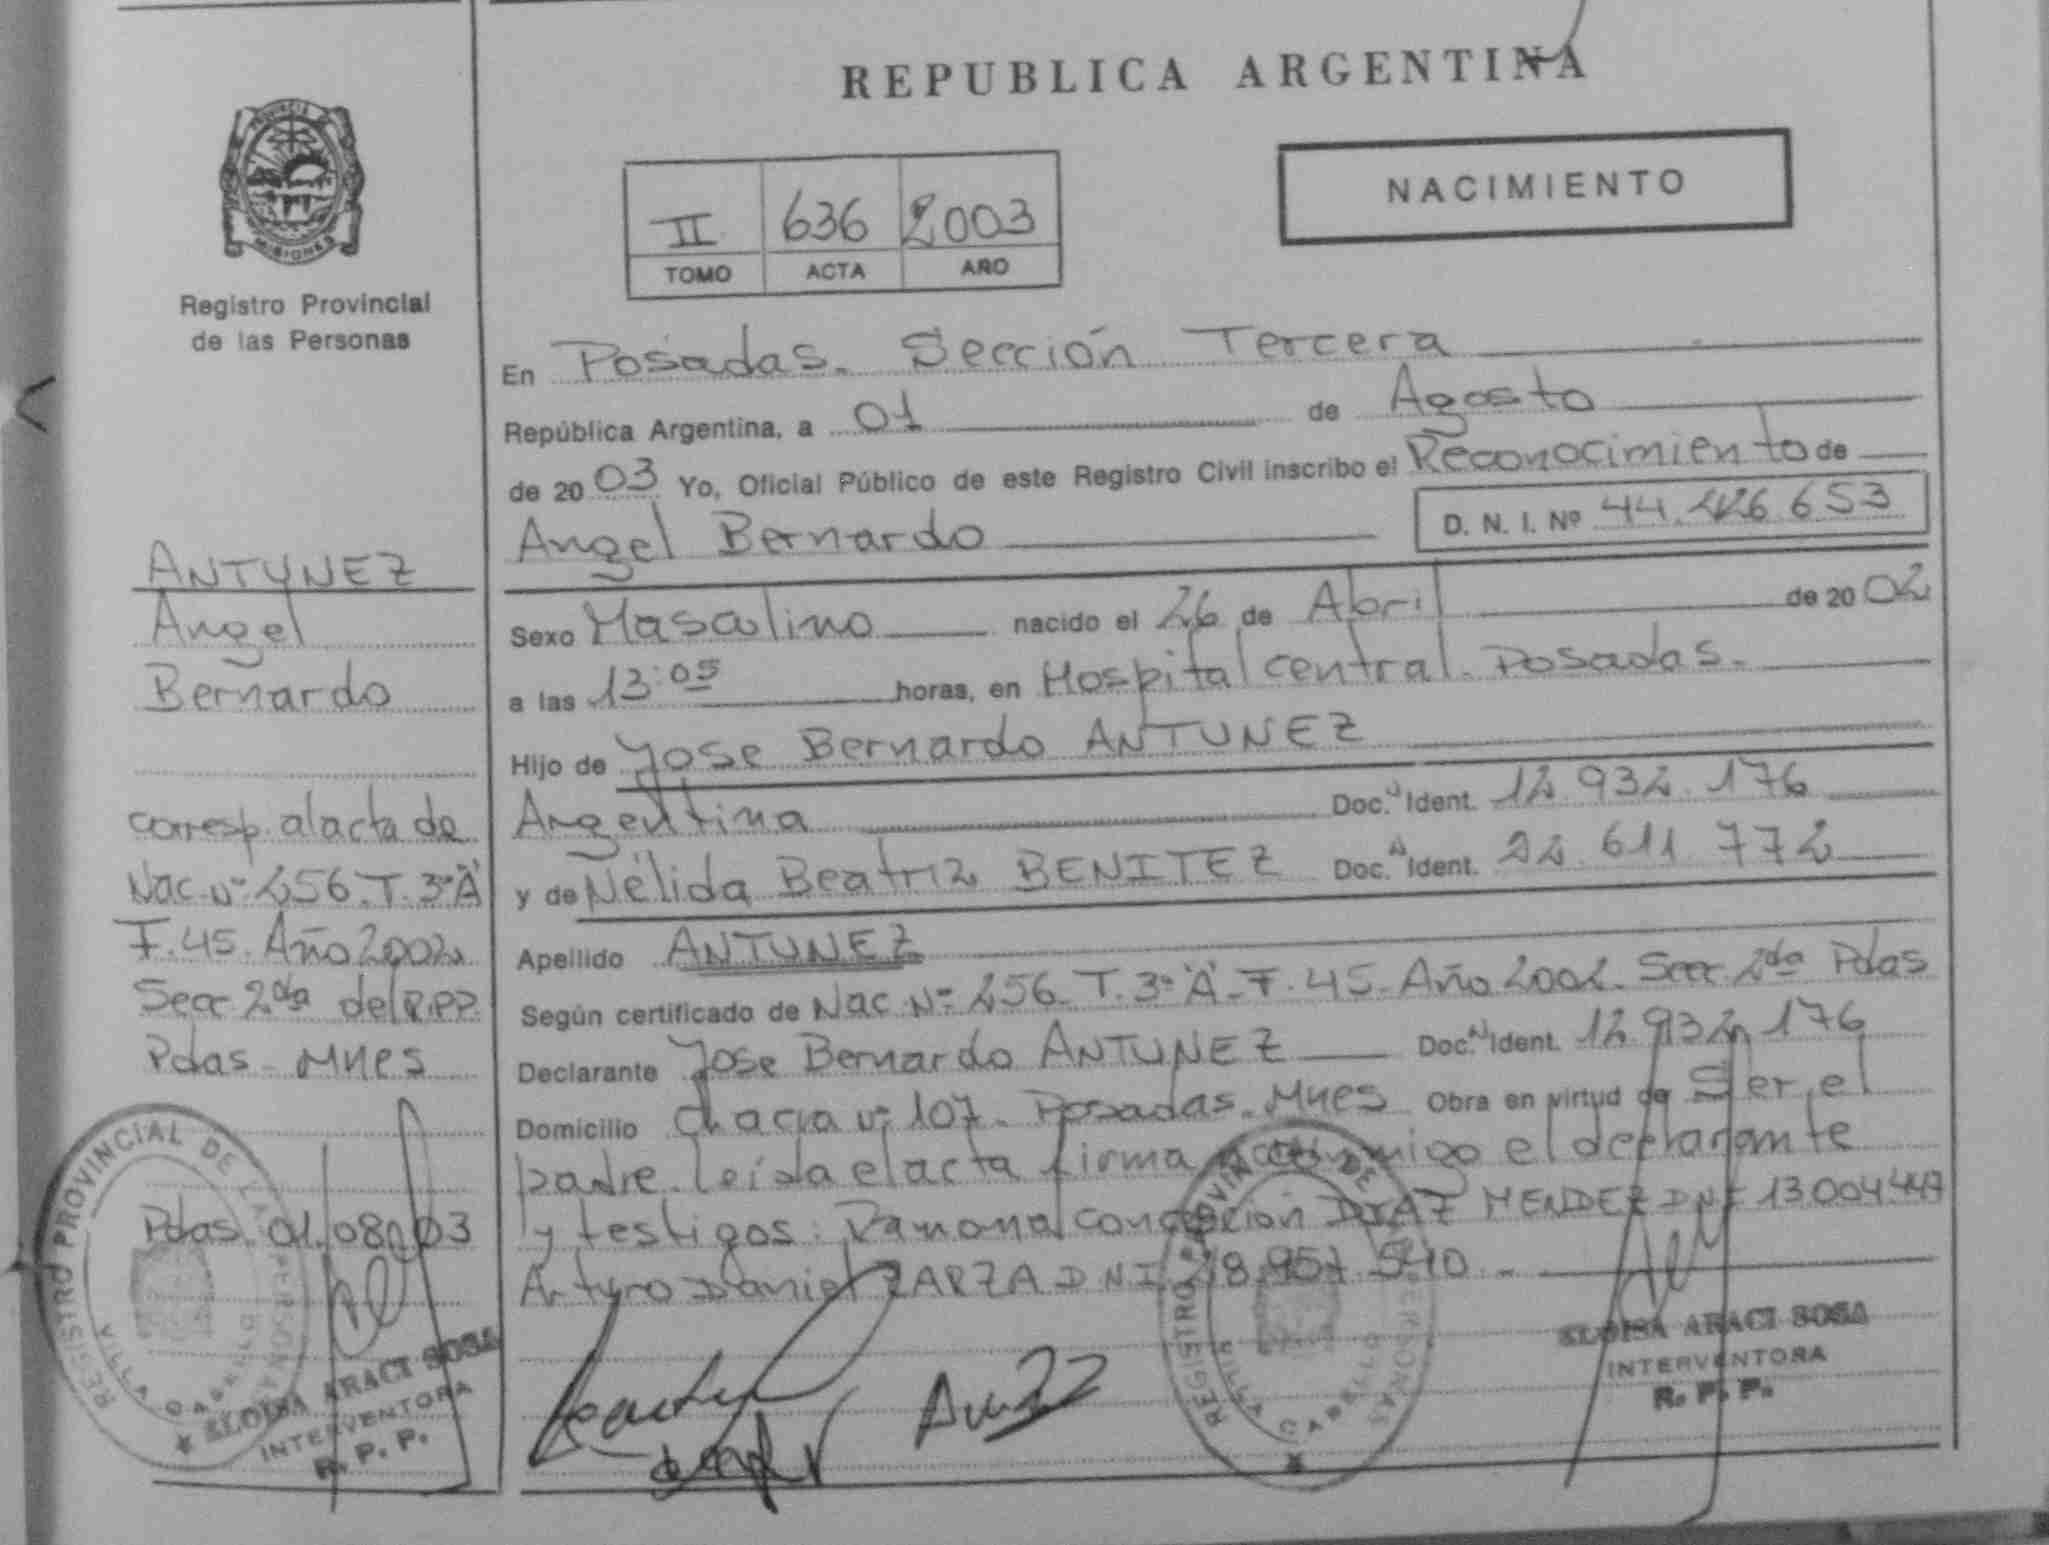 REPUBLICA ARGENTINA
PROVINCIA DE MISIONES
Registro Provincial
de las Personas
II 636 2003
TOMO ACTA AÑO
NACIMIENTO
En Posadas. Sección Tercera
República Argentina, a 01 de Agosto
de 2003 Yo, Oficial Público de este Registro Civil inscribo el Reconocimiento de
Angel Bernardo D. N. I. Nº 44.226.653
Sexo Masculino nacido el 26 de Abril de 2002
a las 13:05 horas, en Hospital central. Posadas.
Hijo de Jose Bernardo ANTUNEZ
Argentina Doc. N Ident. 12.932.176
y de Nélida Beatriz BENITEZ Doc. N Ident. 22.611.772
Apellido ANTUNEZ
Según certificado de Nac. Nº 256. T. 3º "A". F. 45. Año 2002. Secc 2da Pdas
Declarante Jose Bernardo ANTUNEZ Doc. N Ident. 12.932.176
Domicilio chacra nº 107. Posadas. Mnes Obra en virtud de Ser el
padre. leída el acta firma conmigo el declarante
y testigos: Ramona concepcion DIAZ MENDEZ DNI 13.004.447
Arturo Daniel ZARZA DNI 28.957.540.
ANTUNEZ
Angel
Bernardo
corresp. al acta de
Nac. Nº 256. T. 3º "A"
F. 45. Año 2002
Secc 2da del R.P.P.
Pdas - Mnes
Pdas. 01.08.03
REGISTRO PROVINCIAL DE LAS PERSONAS
VILLA CABELLO
ELOISA ARACI SOSA
INTERVENTORA
R. P. P.
REGISTRO PROVINCIAL DE LAS PERSONAS
VILLA CABELLO
ELOISA ARACI SOSA
INTERVENTORA
R. P. P.